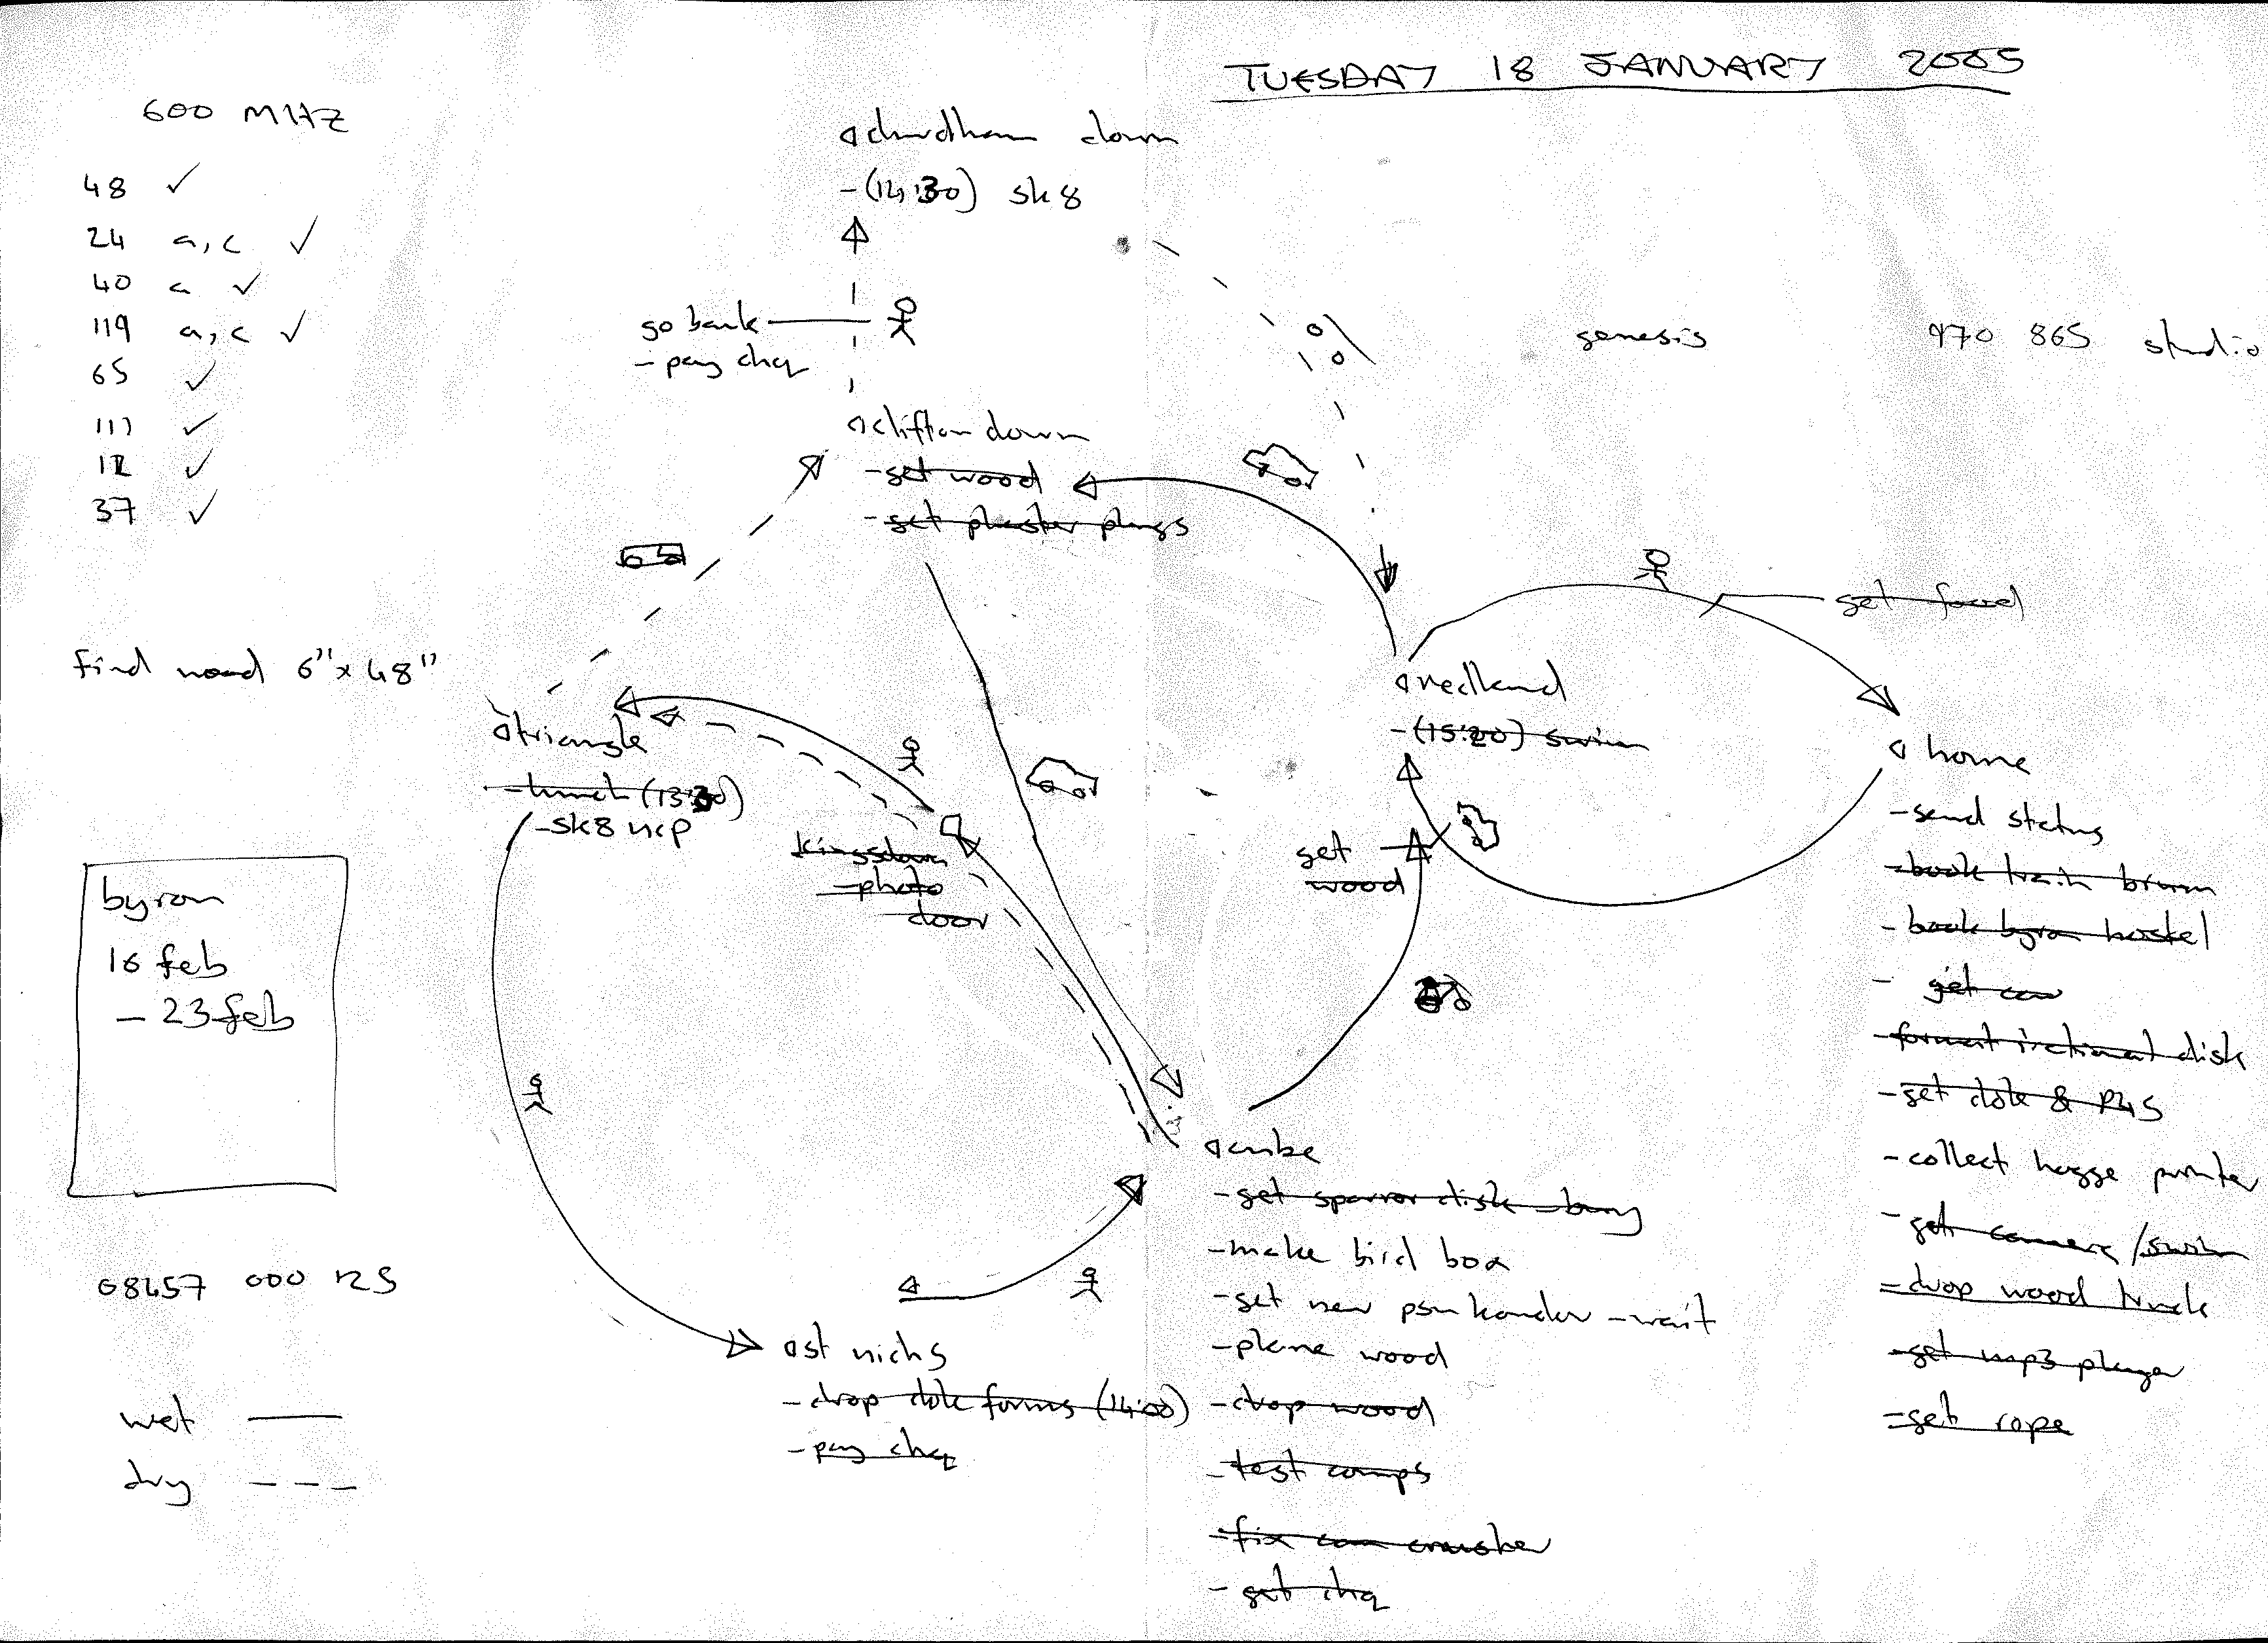 TUESDAY 18 JANUARY 2005
600 MHZ
48 ✓
24 a, c ✓
40 a ✓
119 a, c ✓
65 ✓
111 ✓
12 ✓
37 ✓
find wood 6" x 48"
byron
16 feb
- 23 feb
08457 000 125
wet
dry
down
- (14:30) sk8
go bank
- pay chq
clifton down
- get wood
- get plaster plugs
genesis
970 865 studio
get food
triangle
- lunch (13:30)
- sk8 ncp
kingsdown
- photo
door
redland
- (15:20) swim
get
wood
home
- send status
- book train brum
- book byron hostel
- get
- format irational disk
- get dole & P45
- collect hegge printer
- get camera / swim
- drop wood
- get mp3 player
- get rope
cube
- get sparror disk
- make bird box
- get new - wait
- plane wood
- drop wood
- test comps
- fix can crusher
- get chq
st nichs
- drop dole forms (14:00)
- pay chq